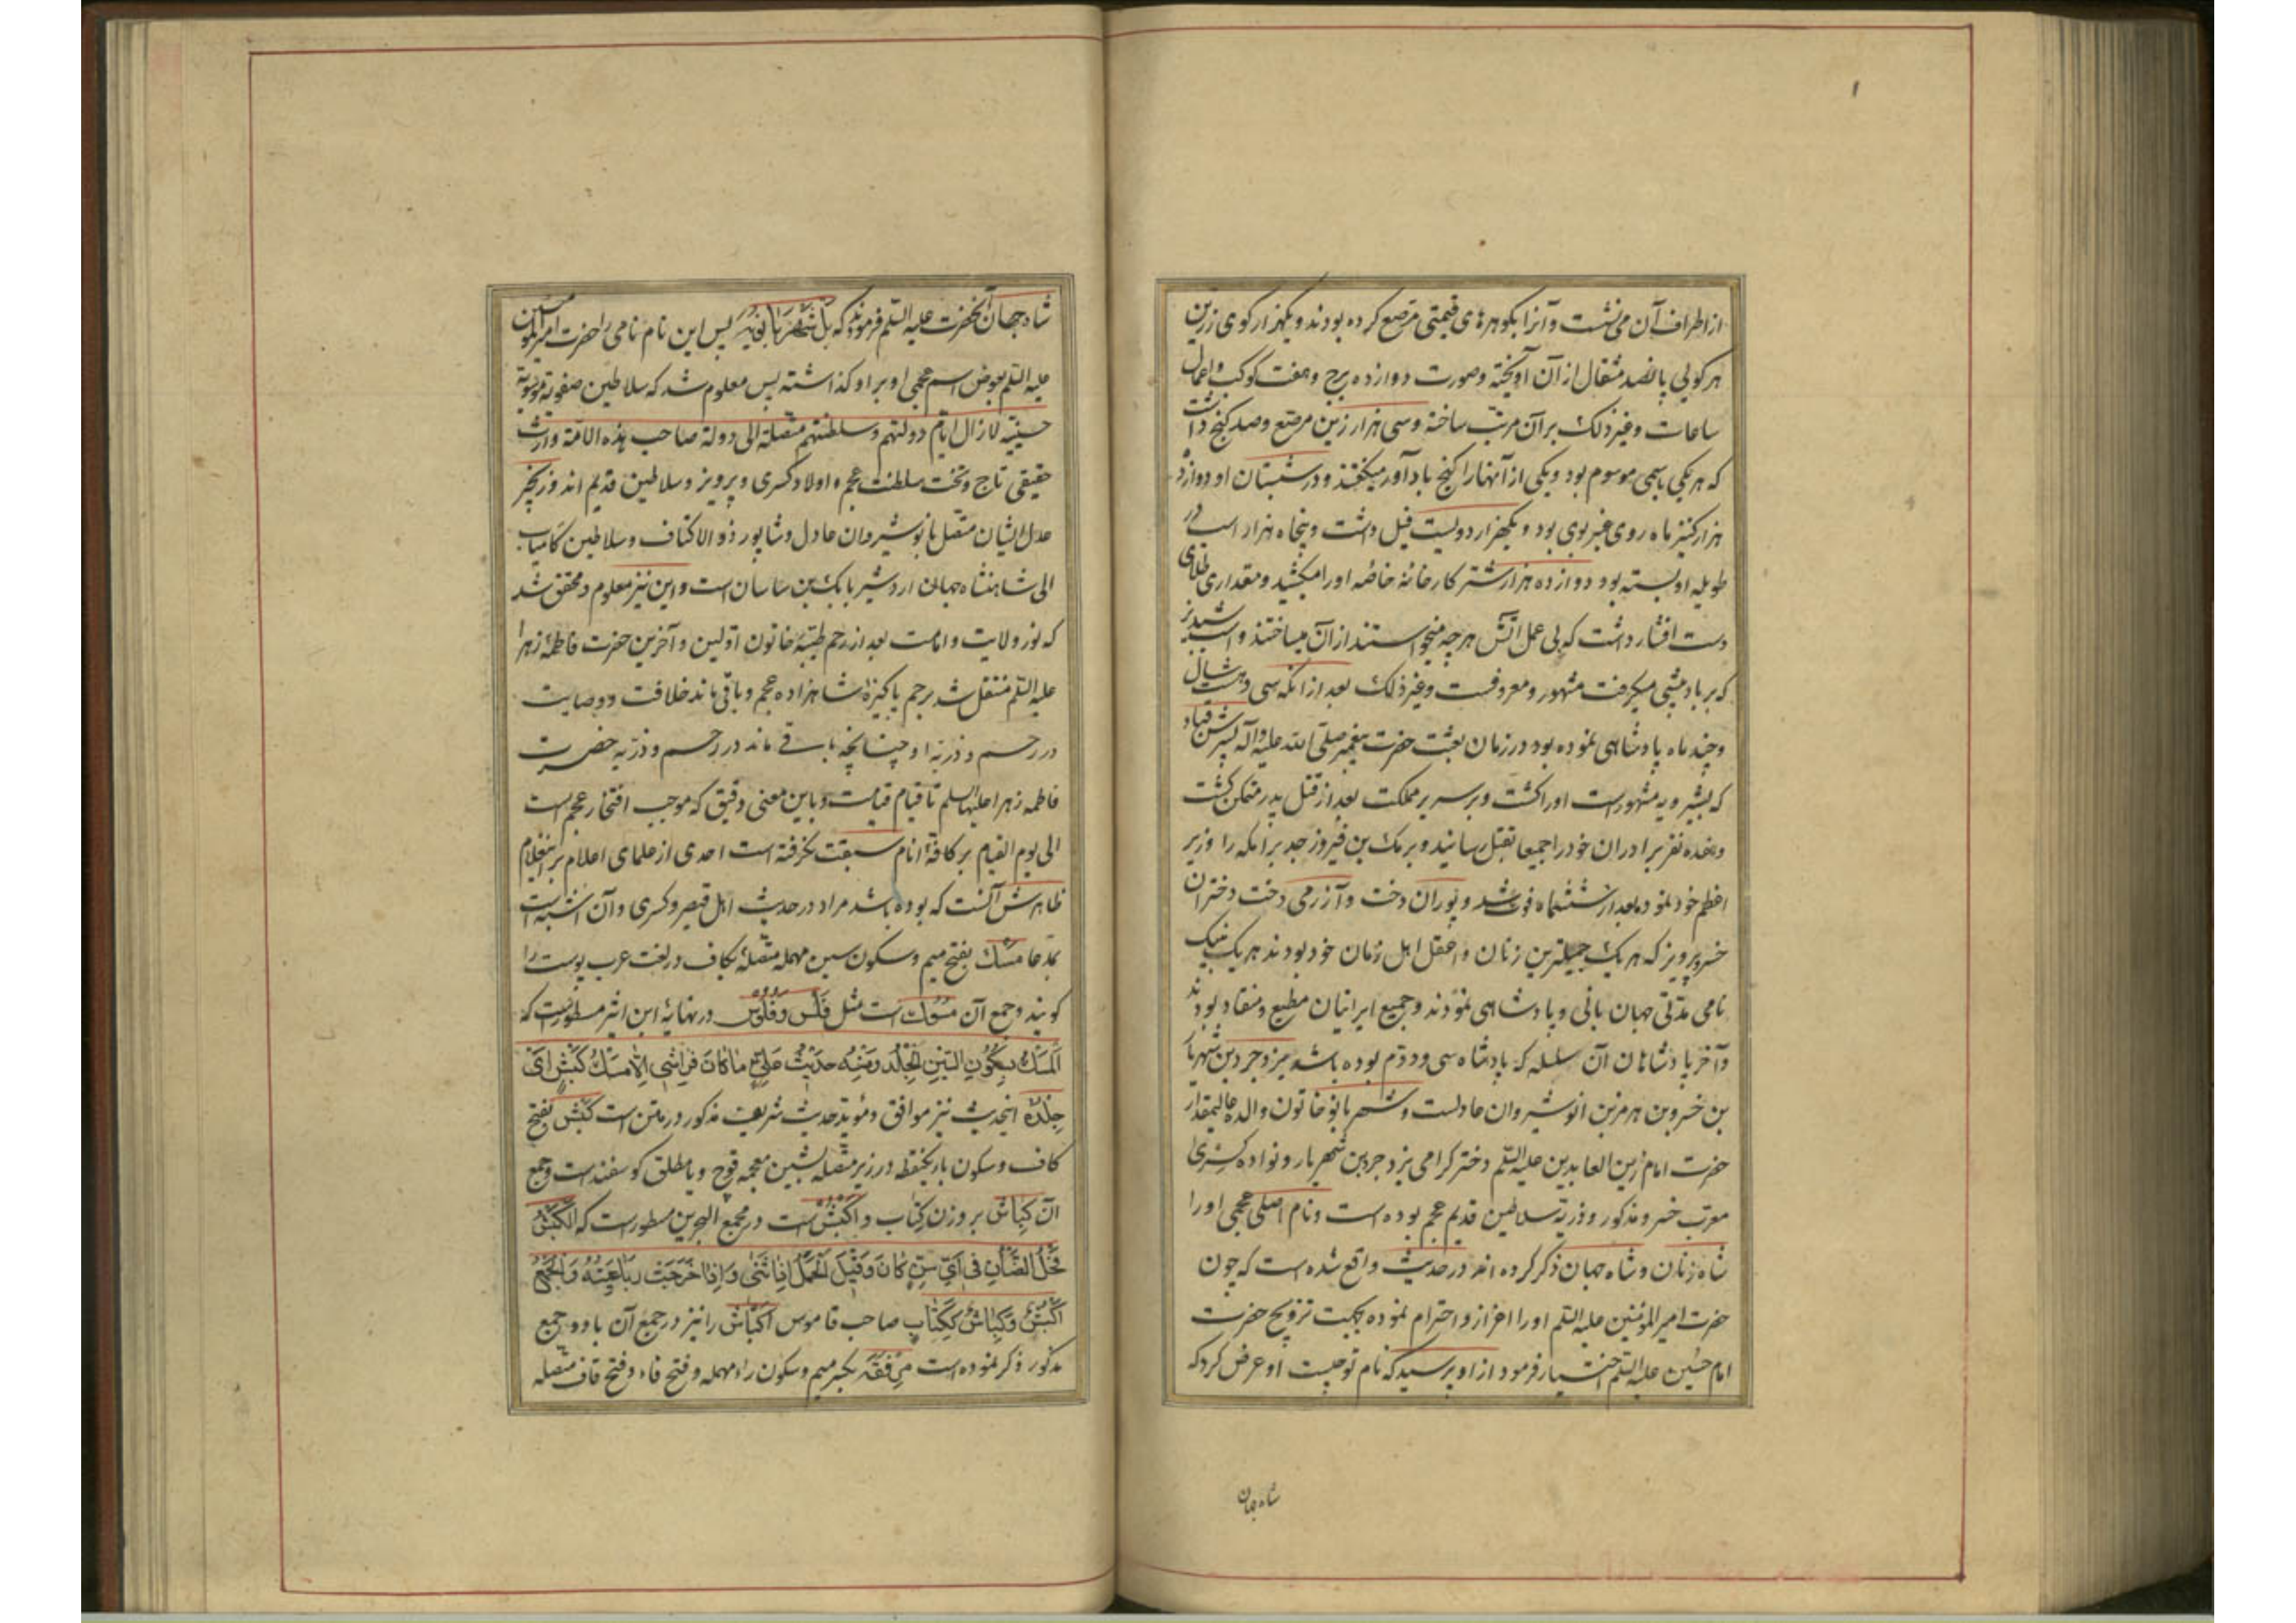 از اطراف آن می نشست و آنرا بکوهرهای قیمتی مرصع کرده بودند و یکهزار کوی زرین
هر کوئی پانصد مثقال از آن آویخته و صورت دوازده برج و هفت کوکب و اعمال
ساعات و غیر ذلک بر آن مرتب ساخته و سی هزار زین مرصع و صد کنج داشت
که هر یکی باسمی موسوم بود و یکی از آنهارا کنج باد آور میکفتند و در شبستان او دوازده
هزار کنیز ماه روی عنبر بوی بود و یکهزار و دویست فیل داشت و پنجاه هزار اسب در
طویله او بسته بود دوازده هزار شتر کارخانه خاصه اورا میکشید و مقداری طلای
دست افشار داشت که بی عمل آتش هر چه میخواستند از آن میساختند و اسب شبدیز
که بر باد پیشی میکرفت مشهور و معروفست و غیر ذلک بعد از آنکه سی و هشت سال
و چند ماه پادشاهی نموده بود در زمان بعثت حضرت پیغمبر صلی الله علیه و آله پسرش قباد
که بشیرویه مشهور است اورا کشت و بر سریر مملکت بعد از قتل پدر متمکن کشت
و هفده نفر برادران خود را جمیعا بقتل رسانید و برمک بن فیروز جد برامکه را وزیر
اعظم خود نموده بعد از ششماه فوت شد و پوران دخت و آزرمی دخت دختران
خسرو پرویز که هر یک جمیلترین زنان و اعقل اهل زمان خود بودند هر یک نیک
نامی مدتی جهان بانی و پادشاهی نمودند و جمیع ایرانیان مطیع و منقاد بودند
و آخر پادشاهان آن سلسله که پادشاه سی و دوم بوده باشد یزدجرد بن شهریار
بن خسرو بن هرمز بن انوشیروان عادلست و شهر بانو خاتون والده عالیمقدار
حضرت امام زین العابدین علیه السلم دختر کرامی یزدجرد بن شهریار و نواده کسری
معرب خسرو مذکور و ذریه سلاطین قدیم عجم بوده است و نام اصلی عجمی اورا
شاه زنان و شاه جهان ذکر کرده اند در حدیث واقع شده است که چون
حضرت امیر المؤمنین علیه السلم اورا اعزاز و احترام نموده بجهت تزویج حضرت
امام حسین علیه السلم اختیار فرمود از او پرسید که نام تو چیست او عرض کرد که
شاه جهان
شاه جهان آنحضرت علیه السلم فرمودند که بل شهربانویه پس این نام نامی را حضرت امیر المؤمنین
علیه السلم بعوض اسم عجمی او بر او کذاشته پس معلوم شد که سلاطین صفویه موسویه
حسینیه لازال ایام دولتهم و سلطنتهم متصلة الی دولة صاحب هذه الامة وارث
حقیقی تاج و تخت سلطنت عجم و اولاد کسری و پرویز و سلاطین قدیم اند و زنجیر
عدل ایشان متصل بانوشیروان عادل و شاپور ذو الاکتاف و سلاطین کامیاب
الی شاهنشاه جهان اردشیر بابک بن ساسان است و این نیز معلوم و محقق شد
که نور ولایت و امامت بعد از رحم طیبه خاتون اولین و آخرین حضرت فاطمه زهرا
علیه السلم منتقل شد برحم پاکیزه شاهزاده عجم و باقی ماند خلافت و وصایت
در رحم و ذریه او چنانچه باقی ماند در رحم و ذریه حضرت
فاطمه زهرا علیها السلم تا قیام قیامت و باین معنی دقیق که موجب افتخار عجم است
الی یوم القیام بر کافه انام سبقت نکرفته است احدی از علمای اعلام
ظاهرش آنست که بوده باشد مراد در حدیث اهل قیصر و کسری و آن اشبه است
بمدعا مسک بفتح میم و سکون سین مهمله متصله بکاف در لغت عرب پوست را
کویند و جمع آن مسوک است مثل فلس و فلوس در نهایه ابن اثیر مسطور است که
المسك بسكون السين الجلد ومنه حديث علي ما كان فراشي الا مسك كبش اي
جلده اینحدیث نیز موافق و مؤید حدیث شریف مذکور در متن است کبش بفتح
کاف و سکون باء یکنقطه در زیر متصله بشین معجمه قوچ و یا مطلق کوسفند است و جمع
آن کباش بر وزن کتاب و اکبش است در مجمع البحرین مسطور است که الکبش
فحل الضأن في اي سن كان وقيل الحمل اذا اثنى واذا خرجت رباعيته والجمع
اكبش وكباش ككتاب صاحب قاموس اکباش را نیز در جمع آن با دو جمع
مذکور ذکر نموده است مرفقه بکسر میم و سکون راء مهمله و فتح فاء و فتح قاف متصله